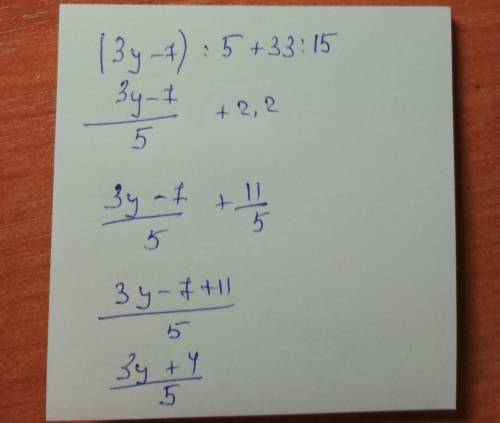 (3y-7) : 5 + 33 : 15
3y-7/5 + 2,2
3y-7/5 + 11/5
3y-7+11/5
3y+4/5